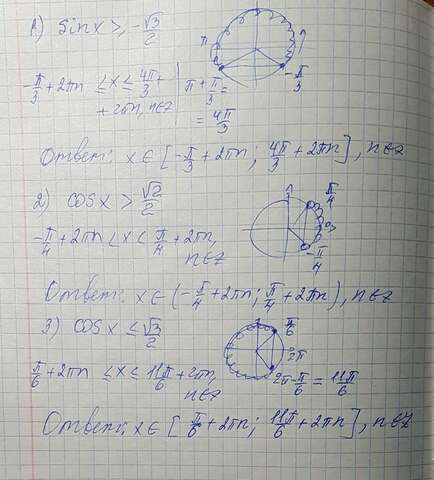 1) sinx ≥ -√3/2
π
-π/3
-π/3 + 2πn ≤ x ≤ 4π/3 + | π + π/3 =
+ 2πn, n∈z | = 4π/3
Ответ: x∈[-π/3 + 2πn; 4π/3 + 2πn], n∈z
2) cosx > √2/2
π/4
-π/4 + 2πn < x < π/4 + 2πn,
n∈z
-π/4
Ответ: x∈(-π/4 + 2πn; π/4 + 2πn), n∈z
3) cosx ≤ √3/2
π/6
2π
π/6 + 2πn ≤ x ≤ 11π/6 + 2πn,
n∈z
2π - π/6 = 11π/6
Ответ: x∈[π/6 + 2πn; 11π/6 + 2πn], n∈z